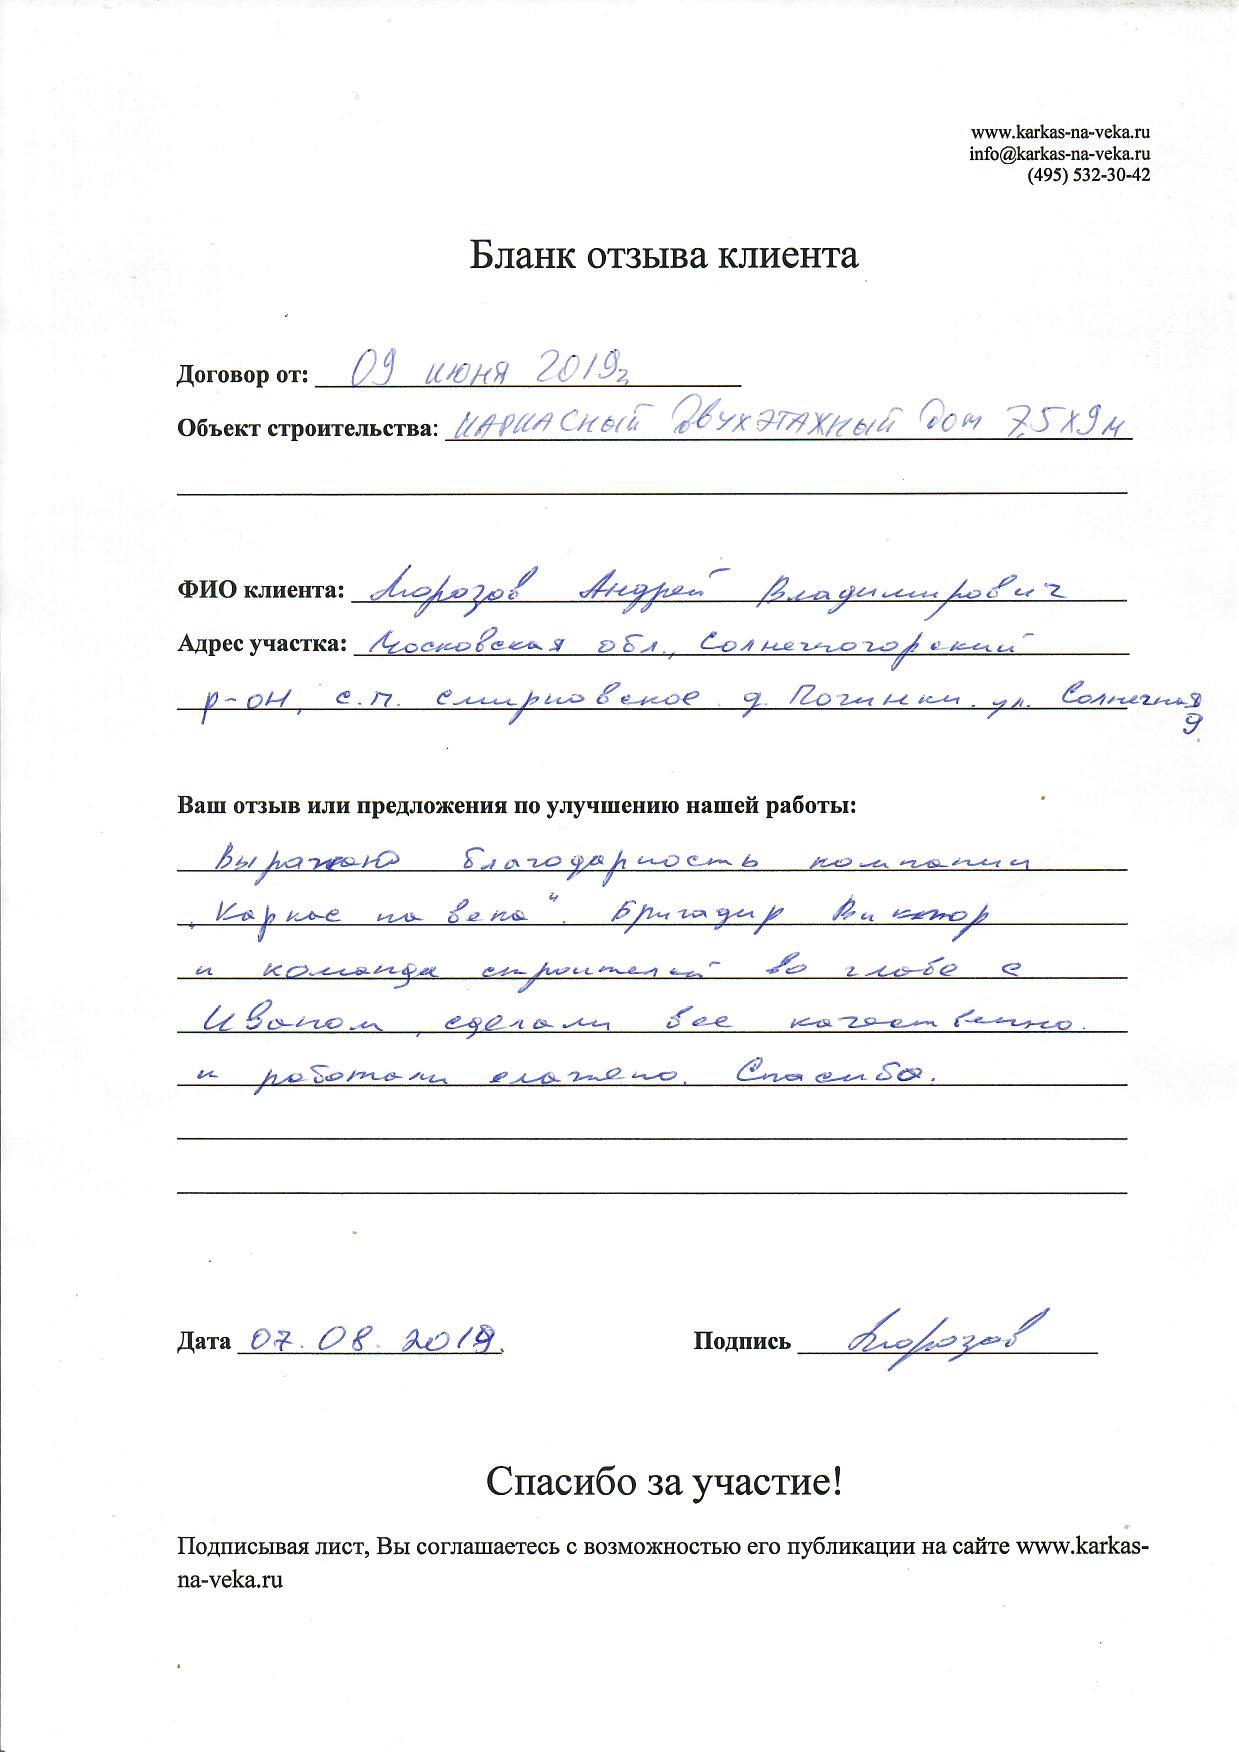 www.karkas-na-veka.ru
info@karkas-na-veka.ru
(495) 532-30-42
Бланк отзыва клиента
Договор от: 09 июня 2019г
Объект строительства: КАРКАСНЫЙ ДВУХЭТАЖНЫЙ ДОМ 7,5Х9 м
ФИО клиента: Морозов Андрей Владимирович
Адрес участка: Московская обл., Солнечногорский
р-он, с.п. Смирновское д. Починки. ул. Солнечная
9.
Ваш отзыв или предложения по улучшению нашей работы:
Выражаю благодарность компании
"Каркас на века". Бригадир Виктор
и команда строителей во главе с
Иваном, сделали все качественно.
и работали слажено. Спасибо.
Дата 07.08.2019. Подпись Морозов
Спасибо за участие!
Подписывая лист, Вы соглашаетесь с возможностью его публикации на сайте www.karkas-
na-veka.ru